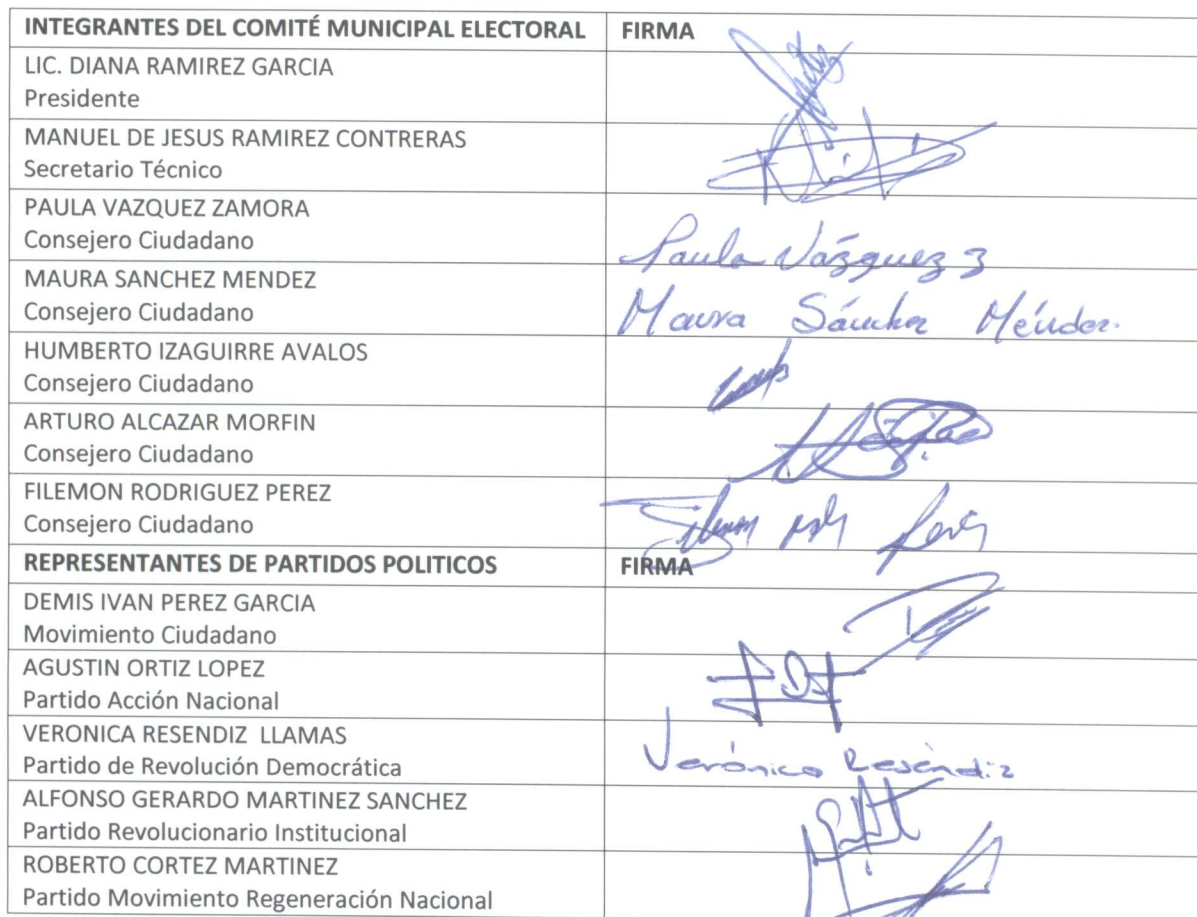 INTEGRANTES DEL COMITÉ MUNICIPAL ELECTORAL FIRMA
LIC. DIANA RAMIREZ GARCIA
Presidente
MANUEL DE JESUS RAMIREZ CONTRERAS
Secretario Técnico
PAULA VAZQUEZ ZAMORA
Consejero Ciudadano
Paula Vázquez Z
MAURA SANCHEZ MENDEZ
Consejero Ciudadano
Maura Sánchez Méndez.
HUMBERTO IZAGUIRRE AVALOS
Consejero Ciudadano
ARTURO ALCAZAR MORFIN
Consejero Ciudadano
FILEMON RODRIGUEZ PEREZ
Consejero Ciudadano
REPRESENTANTES DE PARTIDOS POLITICOS FIRMA
DEMIS IVAN PEREZ GARCIA
Movimiento Ciudadano
AGUSTIN ORTIZ LOPEZ
Partido Acción Nacional
VERONICA RESENDIZ LLAMAS
Partido de Revolución Democrática
Verónica Reséndiz
ALFONSO GERARDO MARTINEZ SANCHEZ
Partido Revolucionario Institucional
ROBERTO CORTEZ MARTINEZ
Partido Movimiento Regeneración Nacional